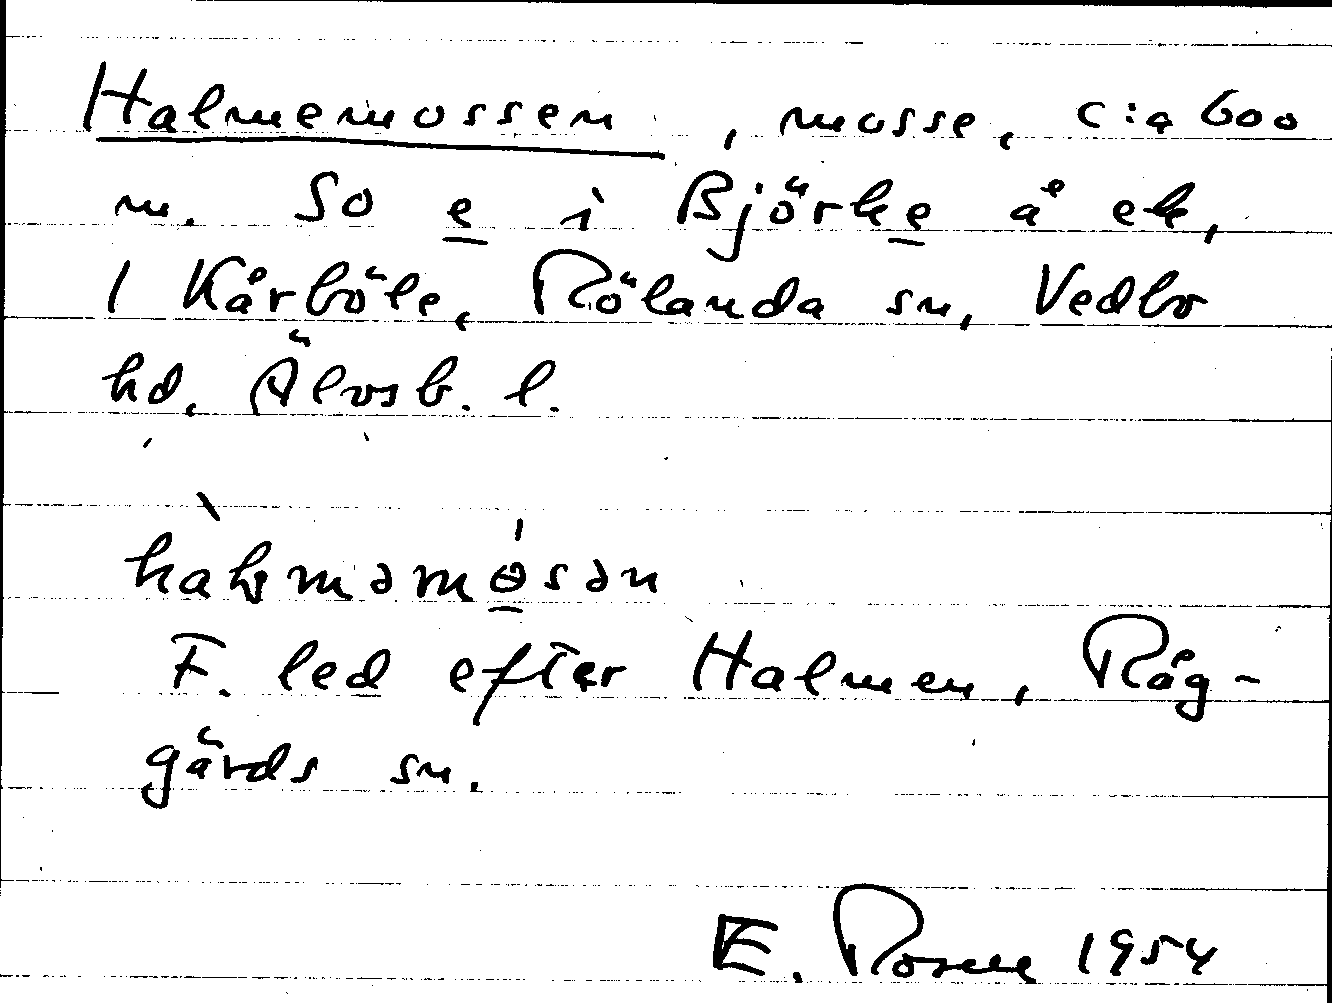 Halmemossen, mosse, c:a 600
m. SO e i Björke å ek,
1 Kårböle, Rölanda sn, Vedbo
hd, Älvsb. l.
F. led efter Halmen, Råg-
gärds sn.
E. 1954